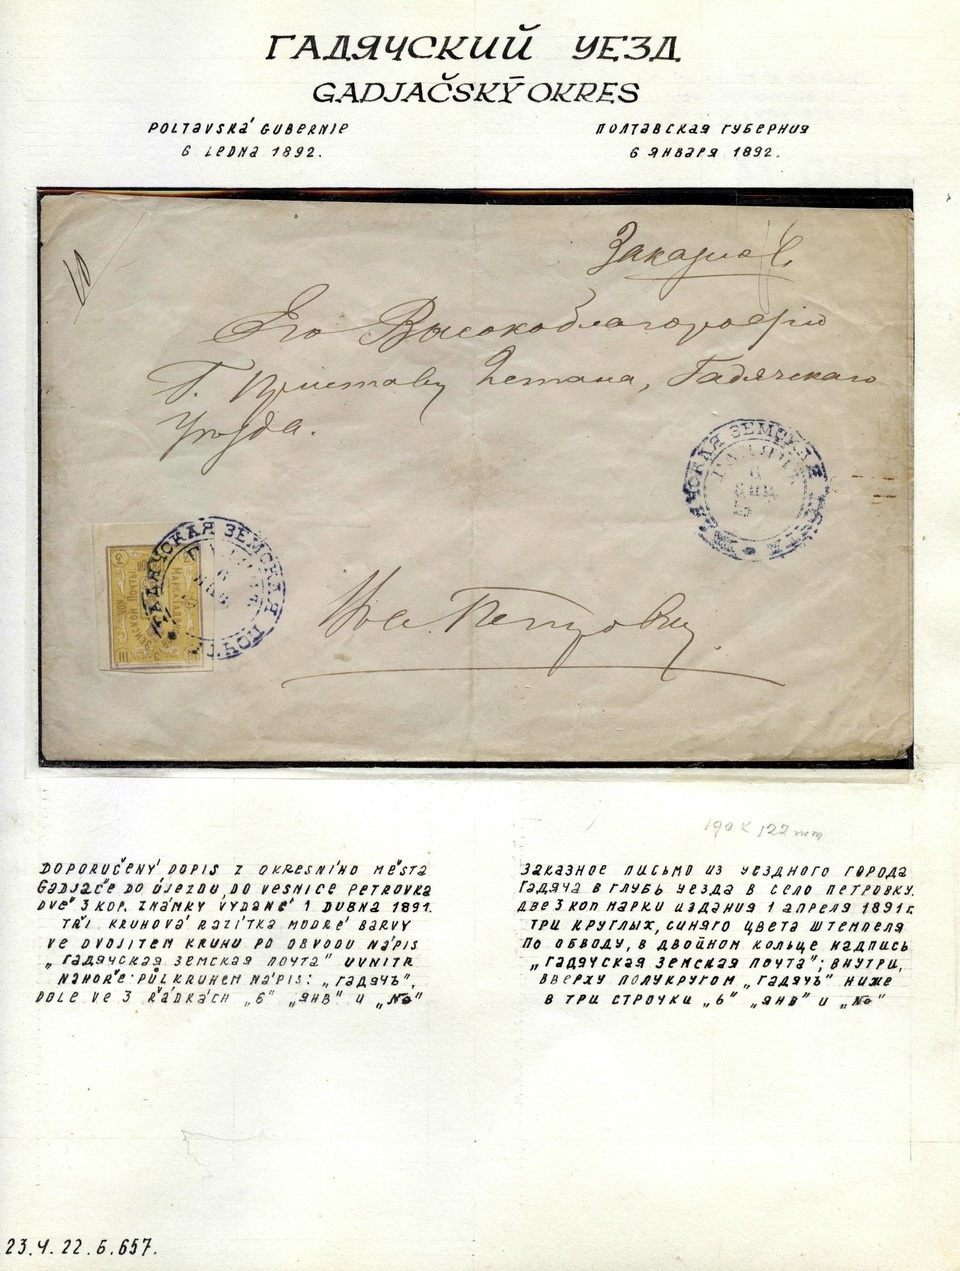 ГАДЯЧСКИЙ УЕЗД
GADJAČSKÝ OKRES
POLTAVSKÁ GUBERNIE
6 LEDNA 1892.
ПОЛТАВСКАЯ ГУБЕРНИЯ
6 ЯНВАРЯ 1892.
Его Высокоблагородію
Г. Приставу 2 стана, Гадячскаго
Уѣзда.
ГАДЯЧСКАЯ ЗЕМСКАЯ ПОЧТА
ГАДЯЧЪ
6
ЯНВ
ГАДЯЧСКАЯ ЗЕМСКАЯ ПОЧТА
6
ЯНВ
Марка Гадяч
Земской Почты
КОП
3
III
На Петровку
190 x 122 mm
DOPORUČENÝ DOPIS Z OKRESNÍHO MĚSTA
GADJAČE DO ÚJEZDU, DO VESNICE PETROVKA
DVĚ 3 KOP. ZNÁMKY VYDANÉ 1 DUBNA 1891.
TŘI KRUHOVÁ RAZÍTKA MODRÉ BARVY
VE DVOJITÉM KRUHU PO OBVODU NÁPIS
„ГАДЯЧСКАЯ ЗЕМСКАЯ ПОЧТА" UVNITŘ
NAHOŘE PŮLKRUHEM NÁPIS: „ГАДЯЧЪ",
DOLE VE 3 ŘÁDKÁCH „6" „ЯНВ" И „№"
ЗАКАЗНОЕ ПИСЬМО ИЗ УЕЗДНОГО ГОРОДА
ГАДЯЧА В ГЛУБЬ УЕЗДА В СЕЛО ПЕТРОВКУ.
ДВЕ 3 КОП МАРКИ ИЗДАНИЯ 1 АПРЕЛЯ 1891 г.
ТРИ КРУГЛЫХ, СИНЯГО ЦВЕТА ШТЕМПЕЛЯ
ПО ОБВОДУ, В ДВОЙНОМ КОЛЬЦЕ НАДПИСЬ
„ГАДЯЧСКАЯ ЗЕМСКАЯ ПОЧТА"; ВНУТРИ,
ВВЕРХУ ПОЛУКРУГОМ „ГАДЯЧЪ" НИЖЕ
В ТРИ СТРОЧКИ „6" „ЯНВ" И „№"
23.4.22.Б.657.